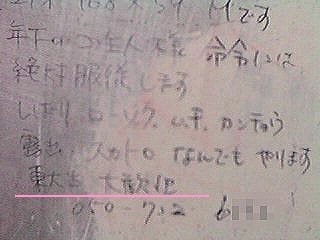 168×54 Mです
年下のご主人様 命令には
絶対服従します
しばり ローソク ムチ カンチョウ
露出 スカトロ なんでもやります
東大生 大歓迎
050-7 2 6